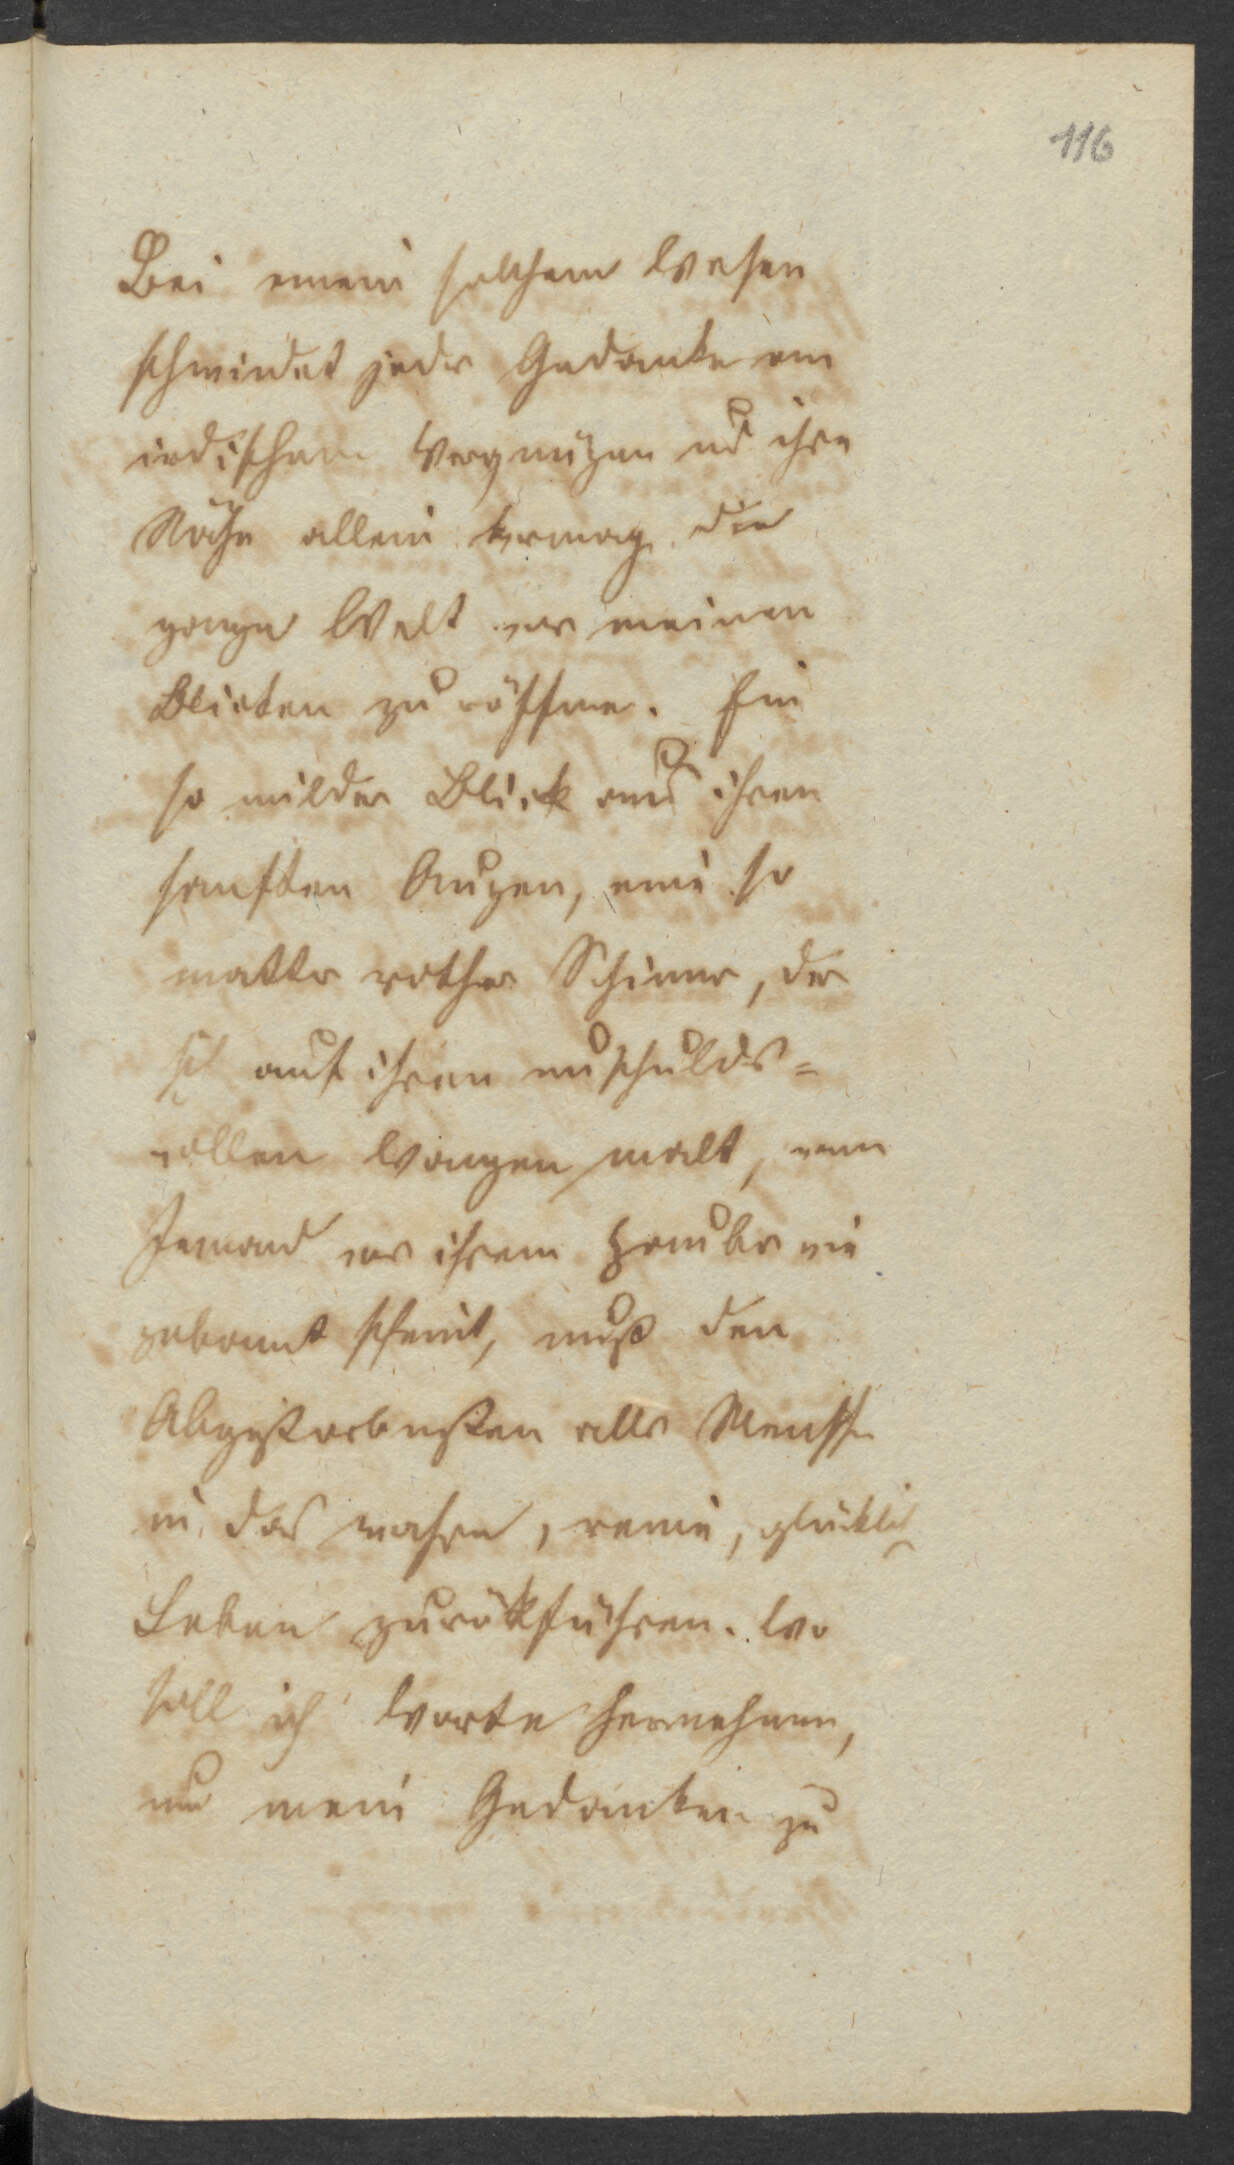 116
Bei einem solchem Wesen
schwindet jeder Gedanke an
irdischem Vergnügen und ihre
Nähe allein vermag die
ganze Welt vor meinen
Blicken zu eröffnen. Ein
so milder Blick aus ihren
sanften Augen, ein so
matter rother Schimer, der
sich auf ihren unschulds=
vollen Wangen malt, wenn
Jemand vor ihrem Zauber wie
gebannt scheint, muß den
Abgestorbensten aller Menschen
in das wahre, reine, glückliche
Leben zurükführen. Wo
soll ich Worte hernehmen,
um mein Gedanken zu